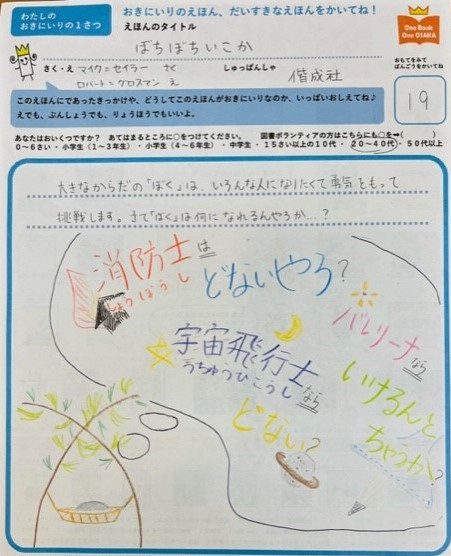 わたしの
おきにいりの1さつ
おきにいりのえほん、だいすきなえほんをかいてね！
えほんのタイトル
ぼちぼちいこか
One Book
One OSAKA
さく・え マイク=セイラー さく
ロバート=グロスマン え
しゅっぱんしゃ
偕成社
おもてをみて
ばんごうをかいてね
19
このえほんにであったきっかけや、どうしてこのえほんがおきにいりなのか、いっぱいおしえてね♪
えでも、ぶんしょうでも、りょうほうでもいいよ。
あなたはおいくつですか？ あてはまるところに○をつけてください。 図書ボランティアの方はこちらにも○を→( )
0～6さい・小学生（1～3年生）・小学生（4～6年生）・中学生・15さい以上の10代・20～40代・50代以上
大きなからだの「ぼく」は、いろんな人になりたくて勇気をもって
挑戦します。さて「ぼく」は何になれるんやろか…？
消防士は
しょうぼうし
どないやろ？
バレリーナなら
いけるんと
ちゃうか？
宇宙飛行士なら
うちゅうひこうし
どない？